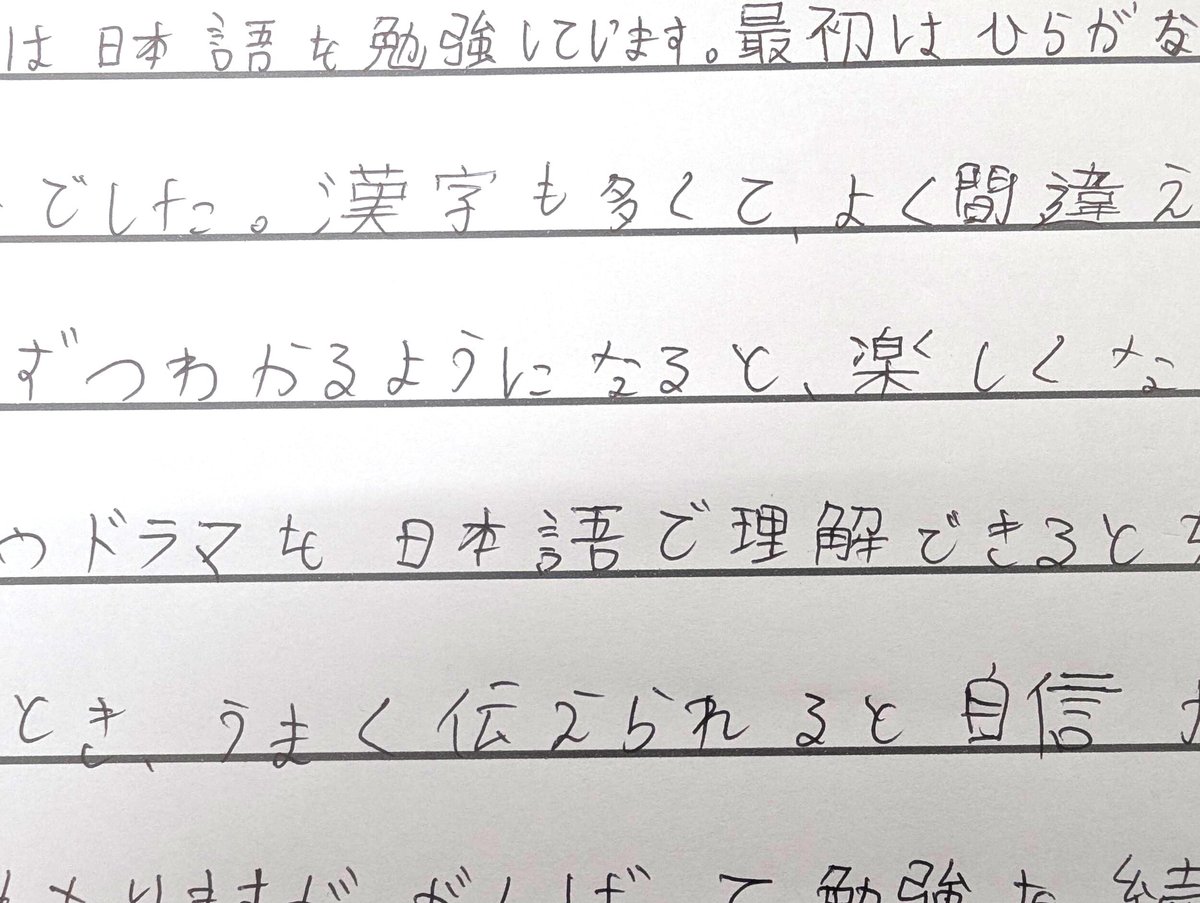 は日本語を勉強しています。最初はひらがな
でした。漢字も多くて、よく間違え
ずつわかるようになると、楽しくな
ドラマを日本語で理解できると
とき、うまく伝えられると自信
りますが、がんばって勉強を続